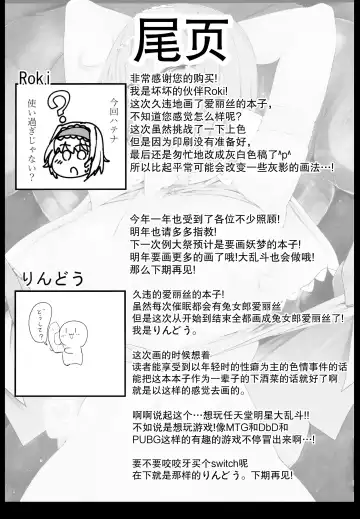 尾页
Roki
今回ハテナ
使い過ぎじゃない?
非常感谢您的购买!
我是坏坏的伙伴Roki!
这次久违地画了爱丽丝的本子,
不知道您感觉怎么样呢?
这次虽然挑战了一下上色
但是因为印刷没有准备好,
最后还是匆忙地改成灰白色稿了^p^
所以比起平常可能会改变一些灰影的画法…!
今年一年也受到了各位不少照顾!
明年也请多多指教!
下一次例大祭预计是要画妖梦的本子!
明年要画更多的画了哦!大乱斗也会做哦!
那么下期再见!
りんどう
どうして?
久违的爱丽丝的本子!
虽然每次催眠都会有兔女郎爱丽丝
但是这次从开始到结束全都画成兔女郎爱丽丝了!
我是りんどう。
这次画的时候想着
读者能享受到以年轻时的性癖为主的色情事件的话
能把这本本子作为一辈子的下酒菜的话就好了啊
就是以这样的感觉去画的。
啊啊说起这个…想玩任天堂明星大乱斗!!
不如说是想玩游戏!像MTG和DbD和
PUBG这样的有趣的游戏不停冒出来啊…!
要不要咬咬牙买个switch呢
在下就是那样的りんどう。下期再见!